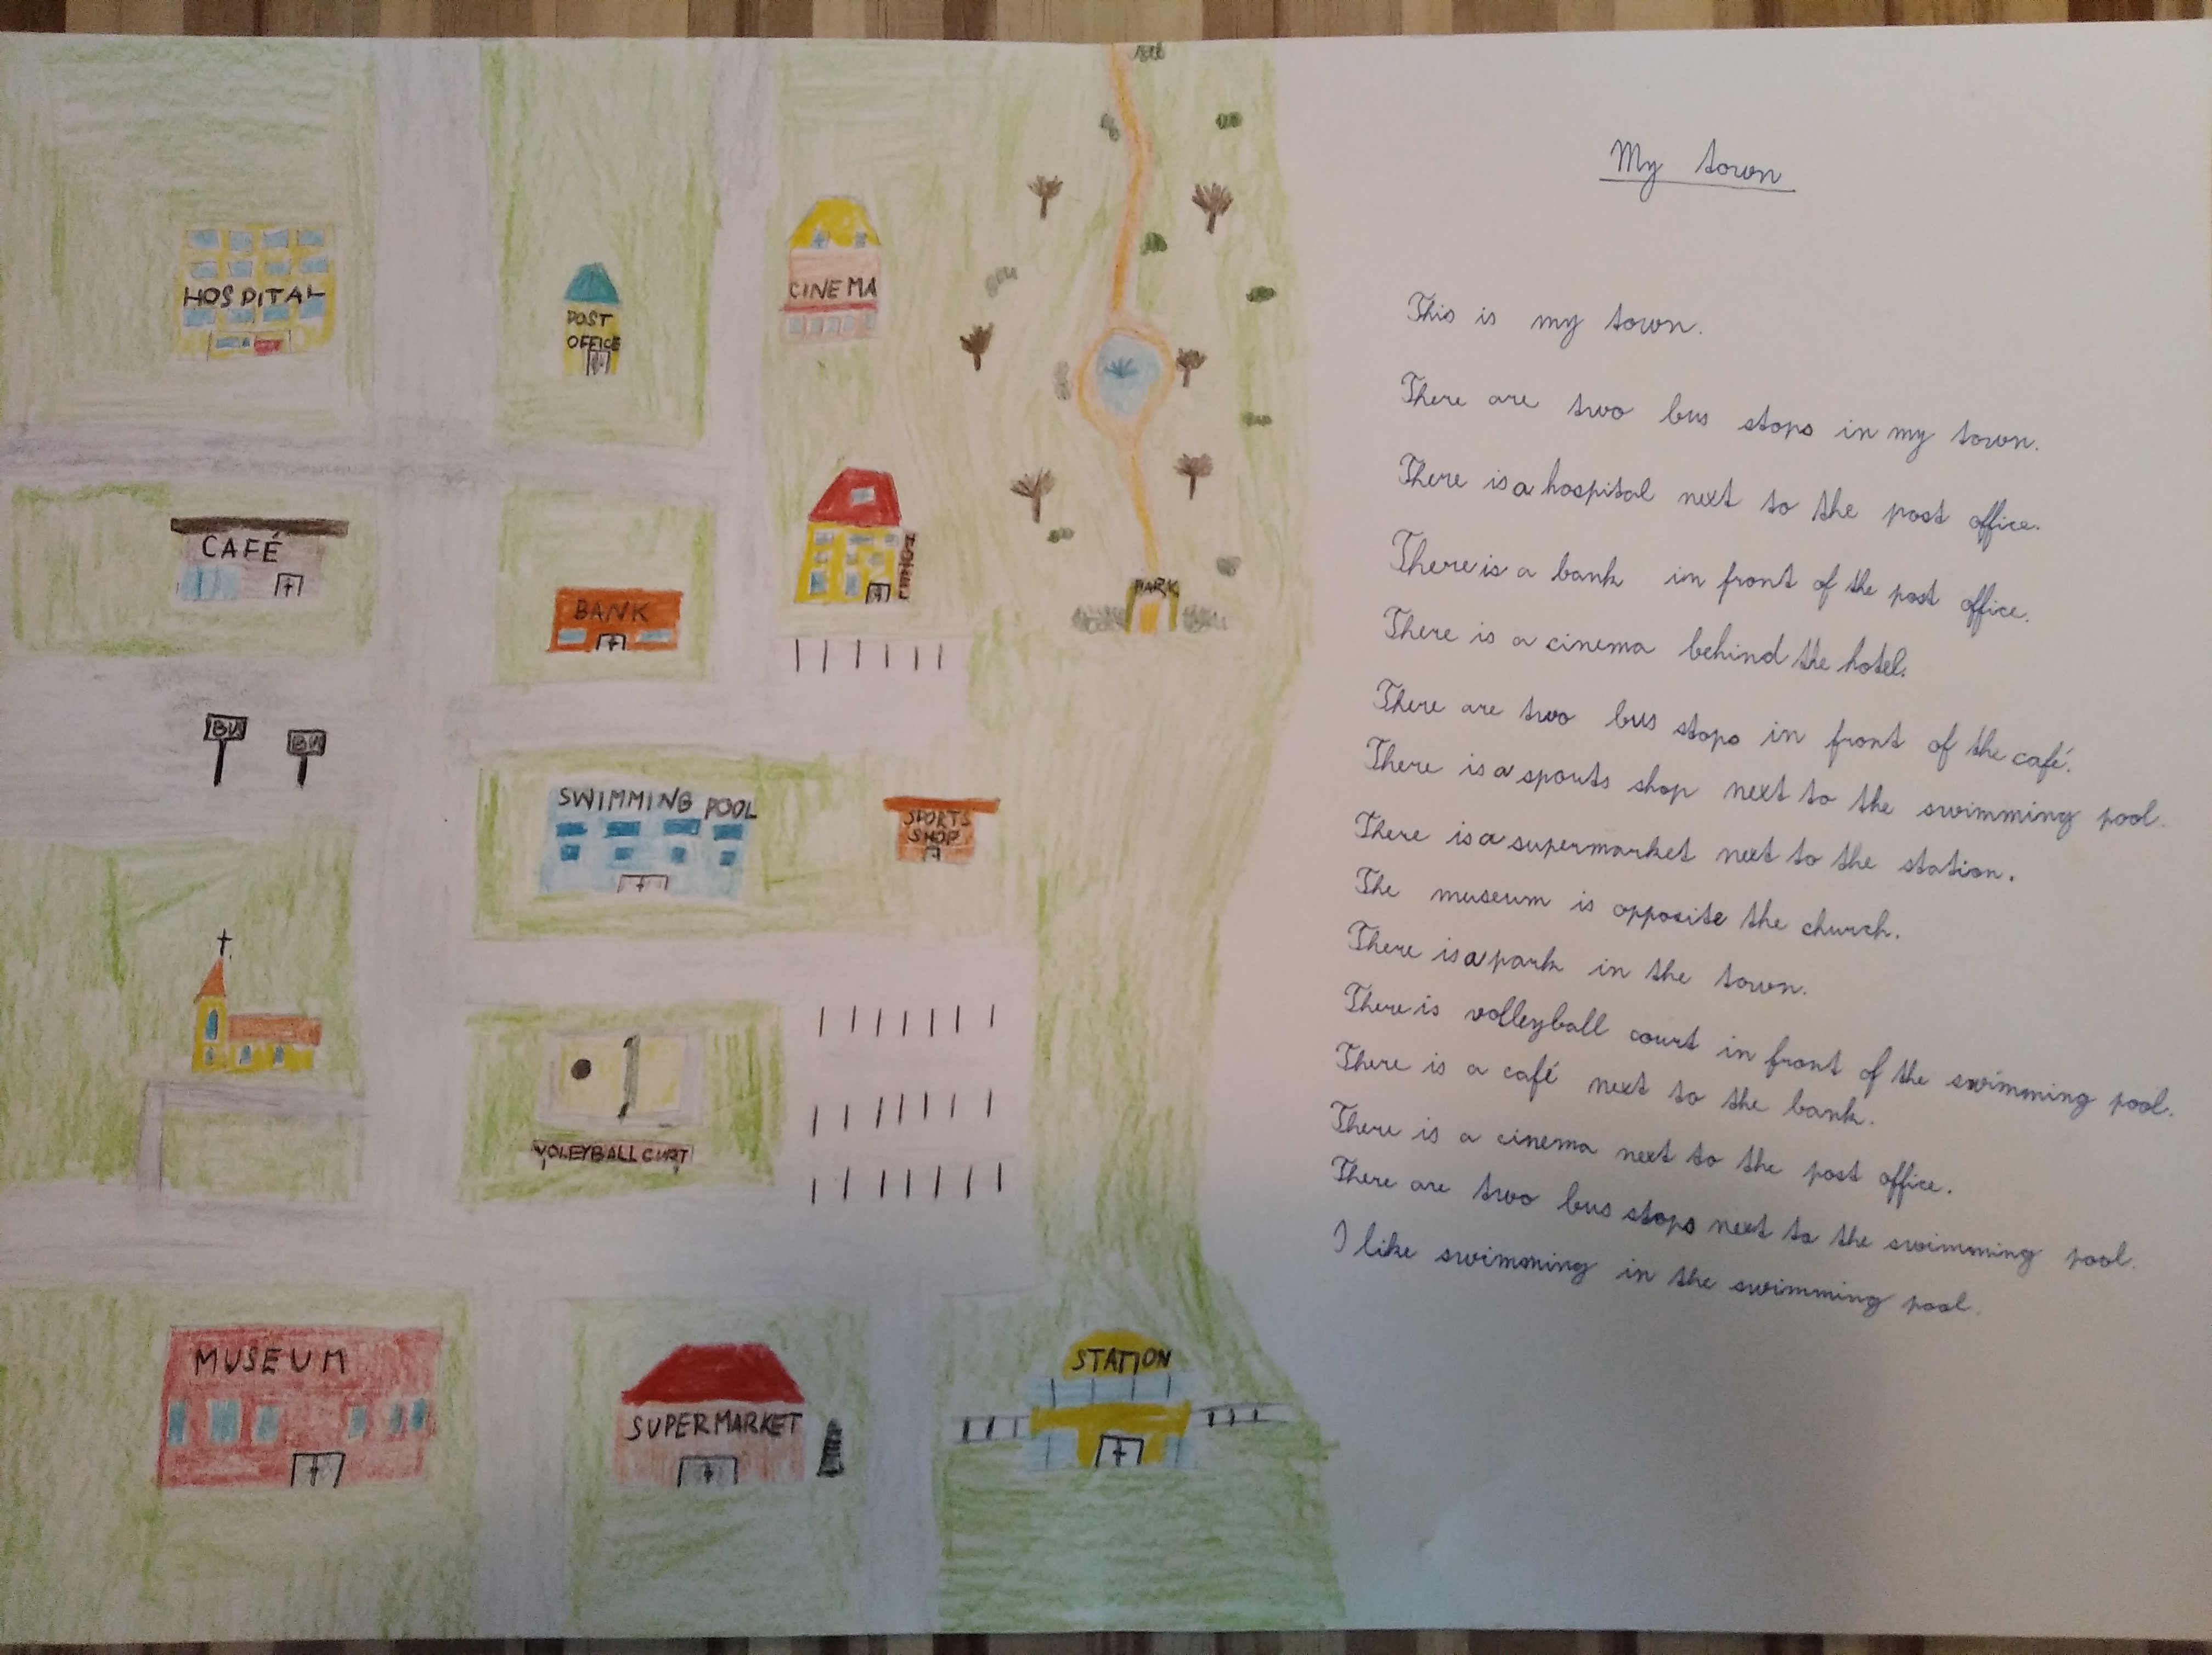 HOSPITAL
POST
OFFICE
CINEMA
CAFÉ
BANK
HOTEL
PARK
BUS
BUS
SWIMMING POOL
SPORTS
SHOP
VOLEYBALL CURT
MUSEUM
SUPERMARKET
STATION
My town
This is my town.
There are two bus stops in my town.
There is a hospital next to the post office.
There is a bank in front of the post office.
There is a cinema behind the hotel.
There are two bus stops in front of the café.
There is a sports shop next to the swimming pool.
There is a supermarket next to the station.
The museum is opposite the church.
There is a park in the town.
There is volleyball court in front of the swimming pool.
There is a café next to the bank.
There is a cinema next to the post office.
There are two bus stops next to the swimming pool.
I like swimming in the swimming pool.